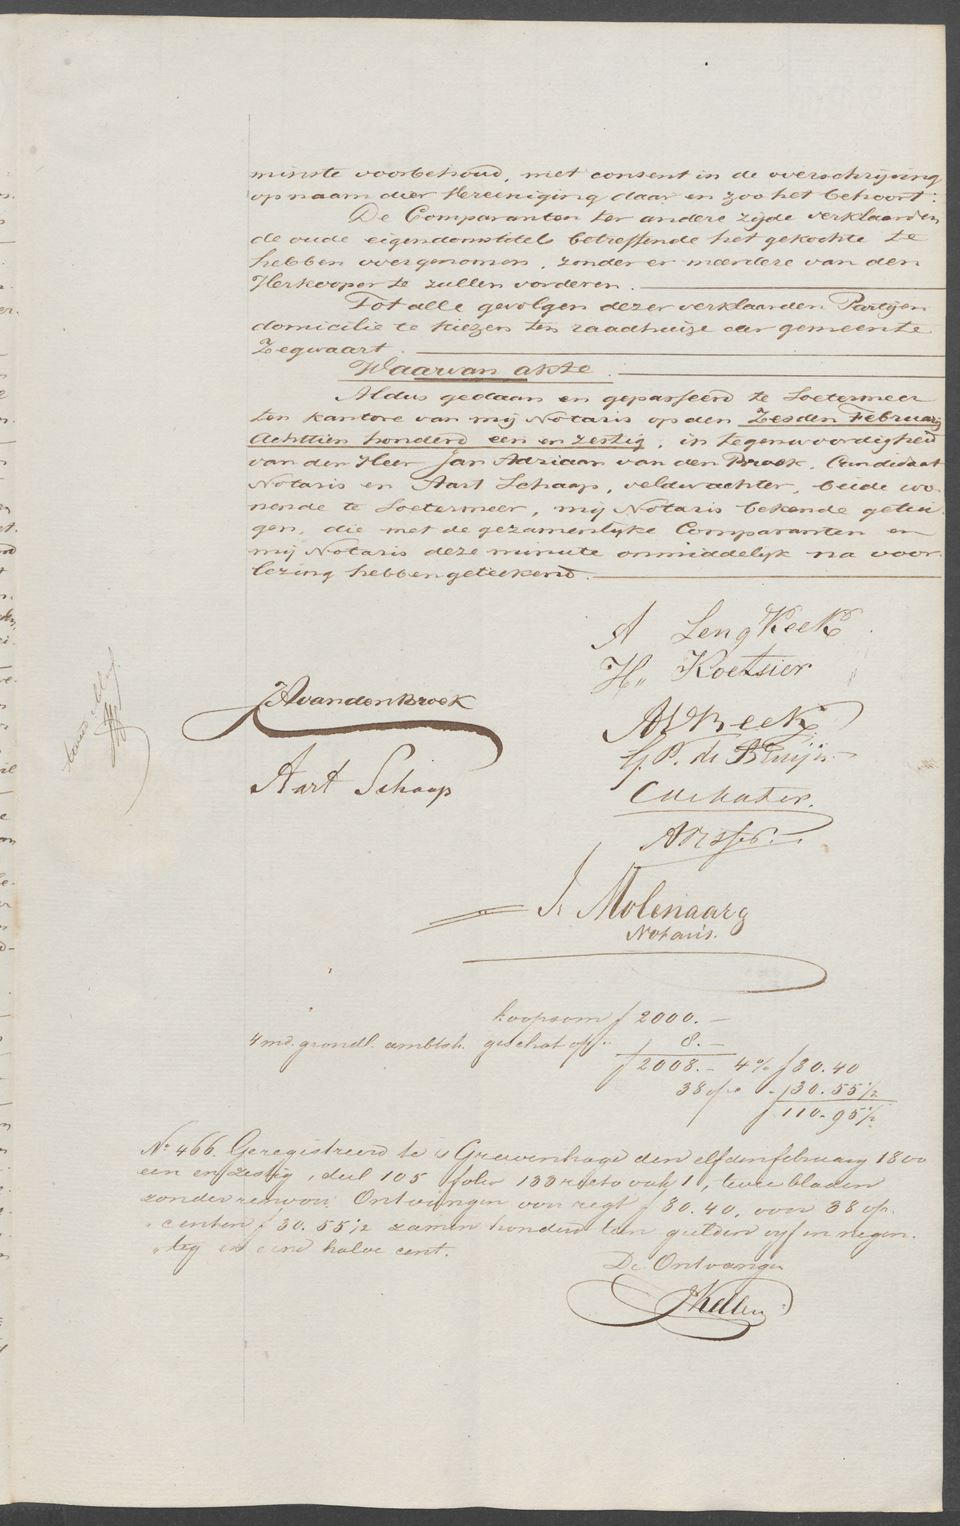 minste voorbehoud, met consent in de overschrijving
op naam dier Vereeniging daar en zoo het behoort:
De Comparanten ter andere zijde verklaarden
de oude eigendomstitels betreffende het gekochte te
hebben overgenomen, zonder er meerdere van den
Verkooper te zullen vorderen.
Tot alle gevolgen dezer verklaarden Partijen
domicilie te kiezen ten raadhuize der gemeente
Zegwaart.
Waarvan akte.
Aldus gedaan en gepasseerd te Soetermeer
ten kantore van mij Notaris op den Zesden Februarij
Achttien honderd een en zestig, in tegenwoordigheid
van den Heer Jan Adriaan van den Broek, Candidaat
Notaris en Aart Schaap, veldwachter, beide wo-
nende te Soetermeer, mij Notaris bekende getui-
gen, die met de gezamenlijke Comparanten en
mij Notaris deze minute onmiddelijk na voor-
lezing hebben geteekend.
A LengKeek
H. Koetsier
JA van den Broek
G. P. de Bruijn
Aart Schaap
J. Molenaar
Notaris.
koopsom f 2000.-
4 md. grondl. ambtsh. geschat op " 8.-
f 2008.- 4% f 80.40
38 op c - 30.55½
f 110.95½
No 466. Geregistreerd te s Gravenhage den elfden februarij 1800
een en zestig, deel 105 folio 133 recto vak 1, twee bladen
zonder renvooi. Ontvangen voor regt f 80.40, voor 38 op-
centen f 30.55½ zamen honderd tien gulden vijf en negen-
tig en een halve cent.
De Ontvanger